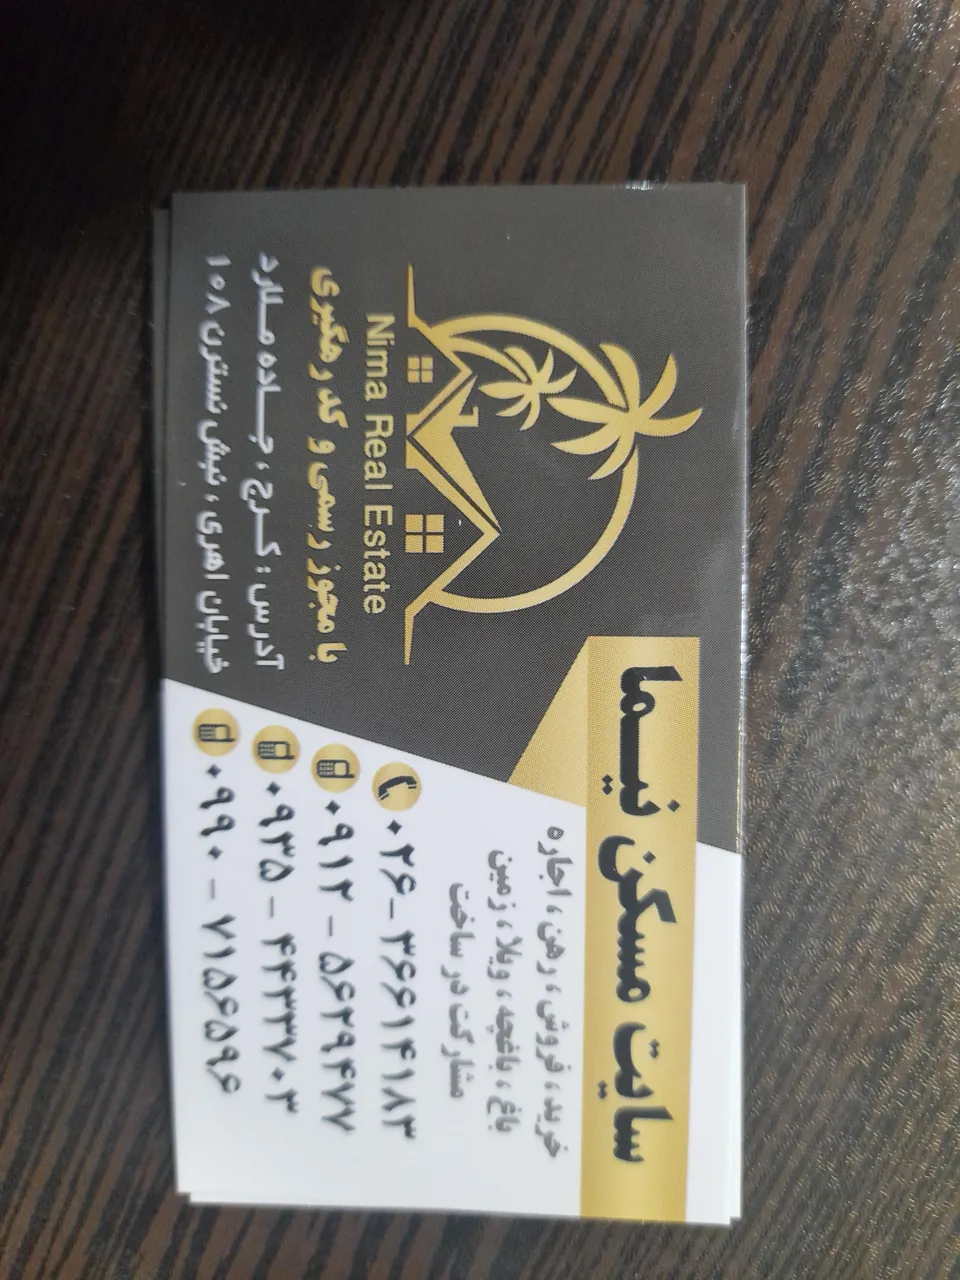 سایت مسکن نیما
خرید، فروش، رهن، اجاره
باغ، باغچه، ویلا، زمین
مشارکت در ساخت
۰۲۶-۳۶۶۱۴۱۸۳
۰۹۱۲ - ۵۶۲۹۴۷۷
۰۹۳۵ - ۴۴۳۳۷۰۳
۰۹۹۰ - ۷۱۵۶۵۹۶
Nima Real Estate
با مجوز رسمی و کد رهگیری
آدرس : کرج ، جاده ملارد
خیابان اهری ، نبش نسترن ۱۰۸